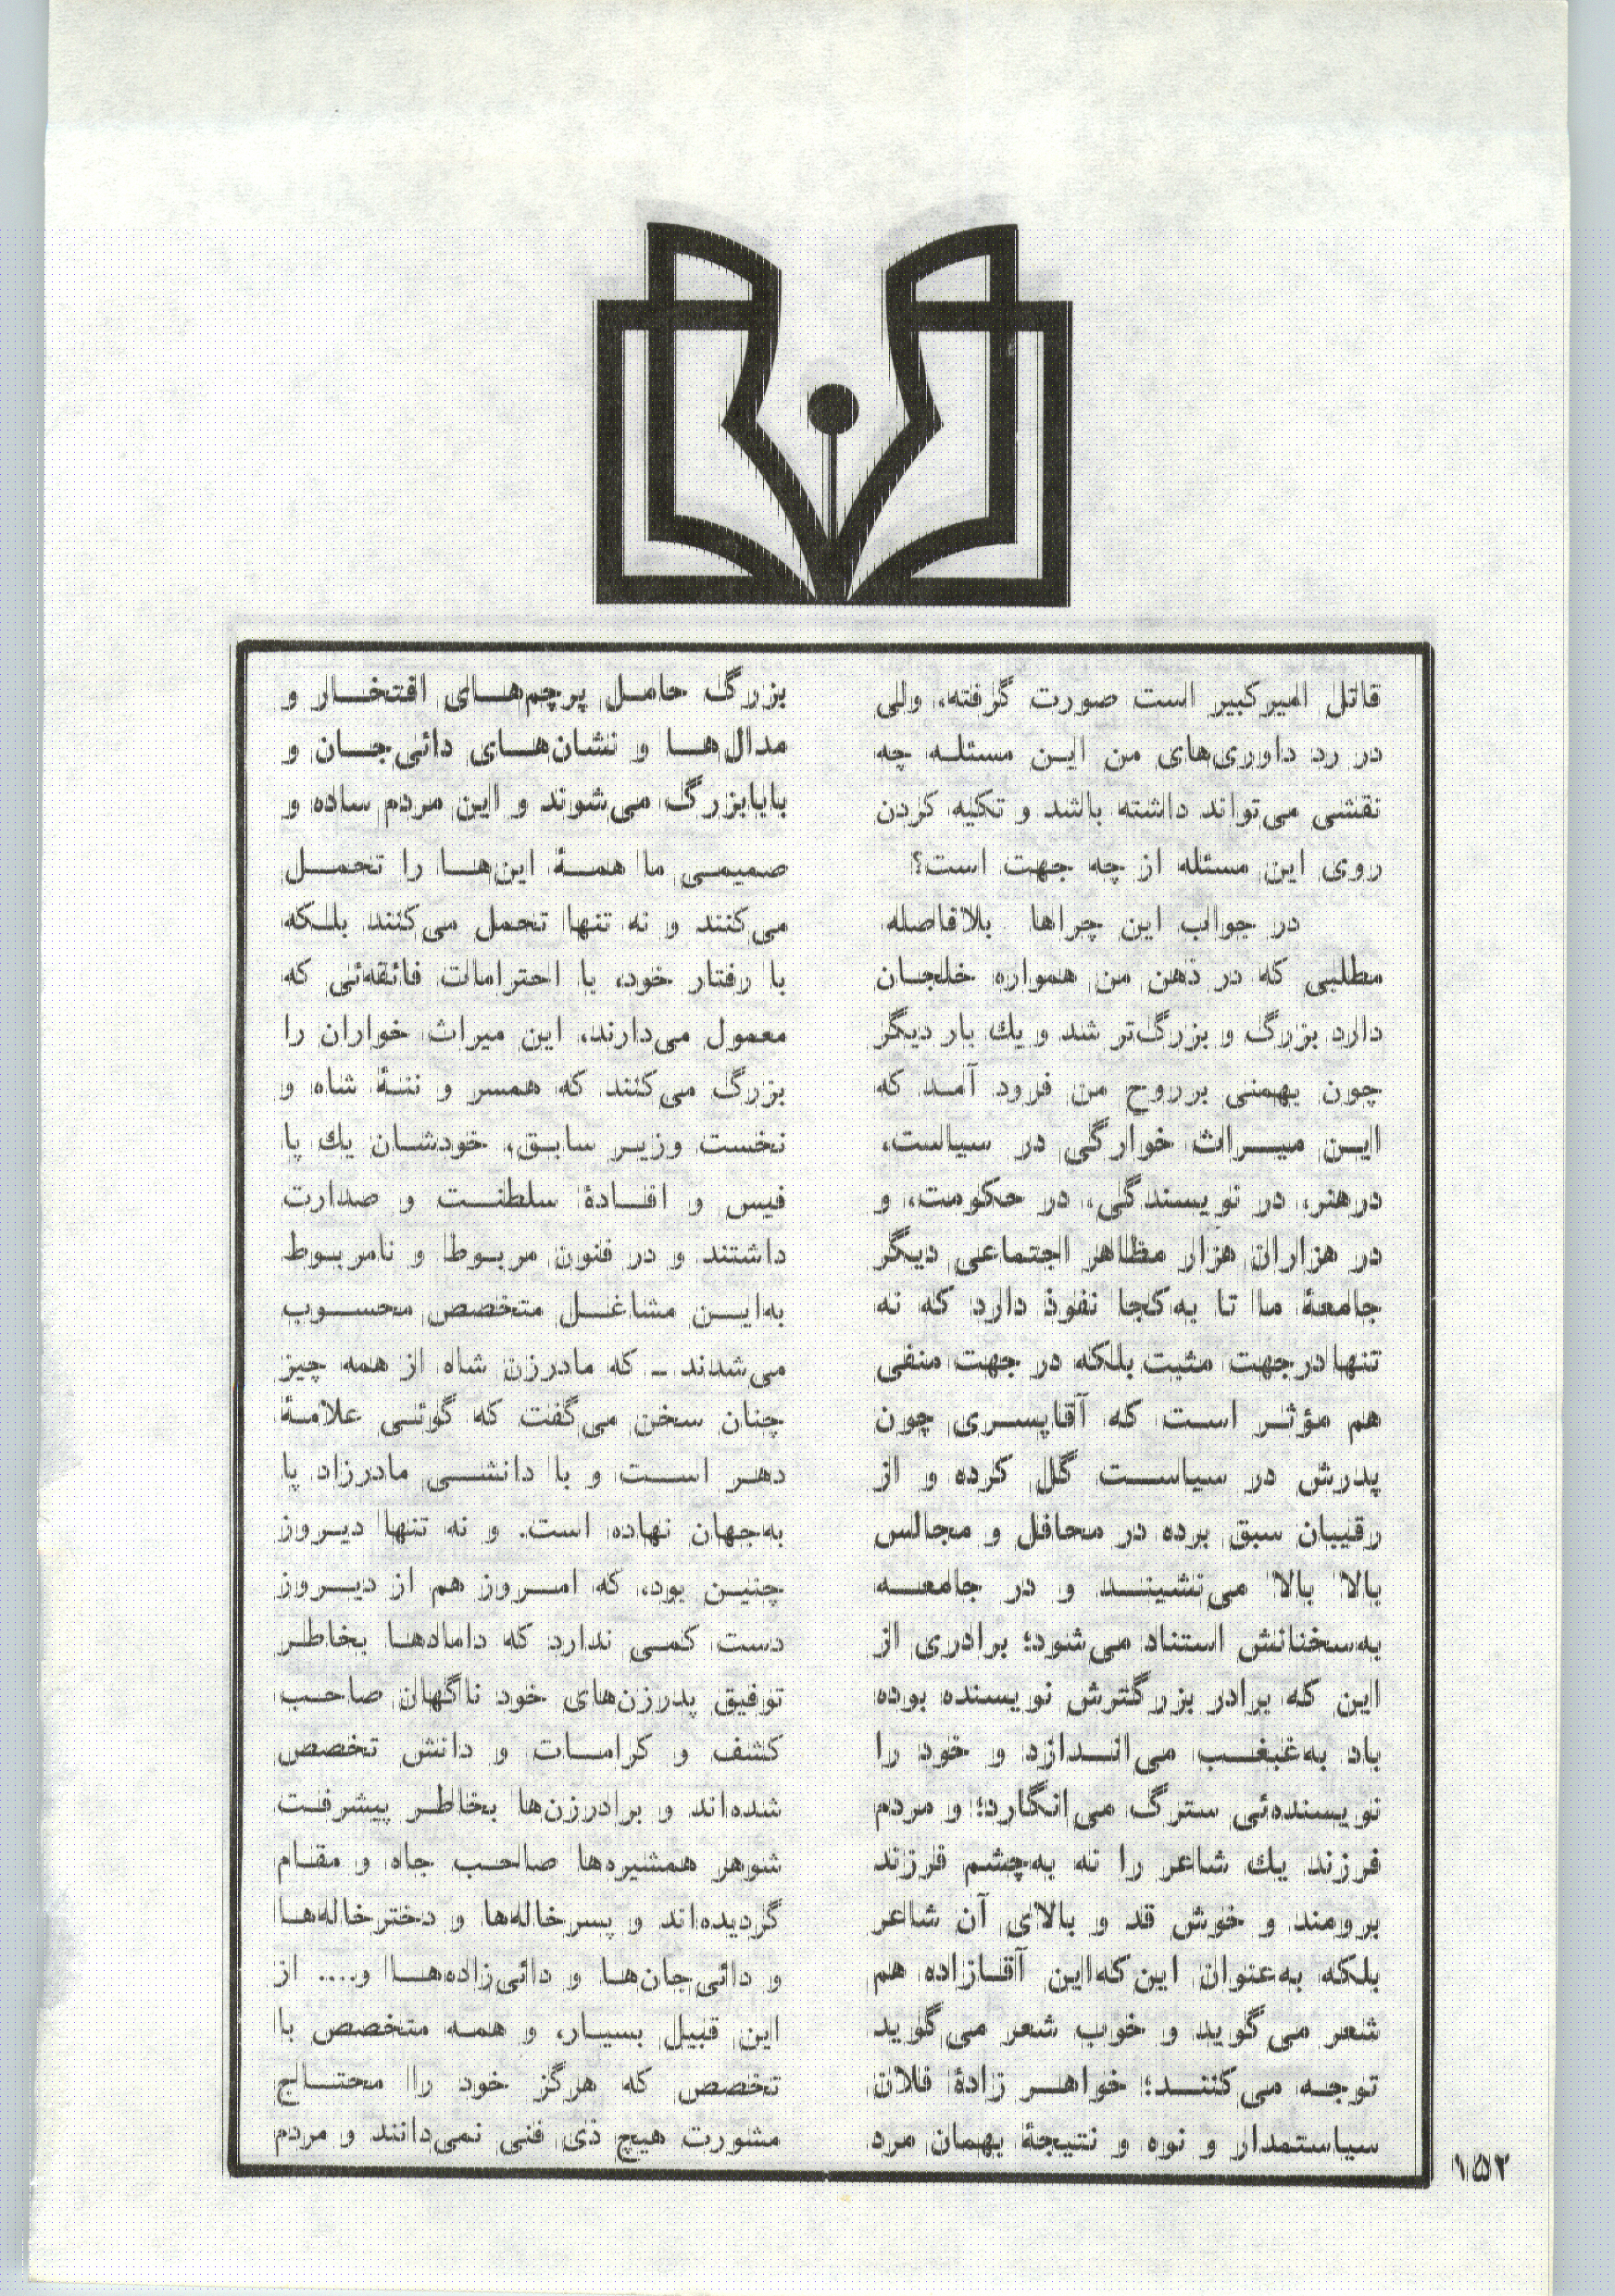 قاتل امیرکبیر است صورت گرفته، ولی
در رد داوری‌های من این مسئله چه
نقشی می‌تواند داشته باشد و تکیه کردن
روی این مسئله از چه جهت است؟
در جواب این چراها بلافاصله
مطلبی که در ذهن من همواره خلجان
دارد بزرگ و بزرگ‌تر شد و یك بار دیگر
چون بهمنی برروح من فرود آمد که
این میراث خوارگی در سیاست،
درهنر، در نویسندگی، در حکومت، و
در هزاران هزار مظاهر اجتماعی دیگر
جامعهٔ ما تا به‌کجا نفوذ دارد که نه
تنها درجهت مثبت بلکه در جهت منفی
هم مؤثر است که آقاپسری چون
پدرش در سیاست گل کرده و از
رقیبان سبق برده در محافل و مجالس
بالا بالا می‌نشیند و در جامعه
به‌سخنانش استناد می‌شود؛ برادری از
این که برادر بزرگترش نویسنده بوده
باد به‌غبغب می‌اندازد و خود را
نویسنده‌ئی سترگ می‌انگارد؛ و مردم
فرزند یك شاعر را نه به‌چشم فرزند
برومند و خوش قد و بالای آن شاعر
بلکه به‌عنوان این‌که‌این آقازاده هم
شعر می‌گوید و خوب شعر می‌گوید
توجه می‌کنند؛ خواهر زادهٔ فلان
سیاستمدار و نوه و نتیجهٔ بهمان مرد
بزرگ حامل پرچم‌های افتخار و
مدال‌ها و نشان‌های دائی‌جان و
بابابزرگ می‌شوند و این مردم ساده و
صمیمی ما همهٔ این‌ها را تحمل
می‌کنند و نه تنها تحمل می‌کنند بلکه
با رفتار خود، با احترامات فائقه‌ئی که
معمول می‌دارند، این میراث خواران را
بزرگ می‌کنند که همسر و ننهٔ شاه و
نخست وزیر سابق، خودشان یك پا
فیس و افادهٔ سلطنت و صدارت
داشتند و در فنون مربوط و نامربوط
به‌این مشاغل متخصص محسوب
می‌شدند ـ که مادرزن شاه از همه چیز
چنان سخن می‌گفت که گوئی علامهٔ
دهر است و با دانشی مادرزاد پا
به‌جهان نهاده است. و نه تنها دیروز
چنین بود، که امروز هم از دیروز
دست کمی ندارد که دامادها بخاطر
توفیق پدرزن‌های خود ناگهان صاحب
کشف و کرامات و دانش تخصص
شده‌اند و برادرزن‌ها بخاطر پیشرفت
شوهر همشیره‌ها صاحب جاه و مقام
گردیده‌اند و پسرخاله‌ها و دخترخاله‌ها
و دائی‌جان‌ها و دائی‌زاده‌ها و.... از
این قبیل بسیار، و همه متخصص با
تخصص که هرگز خود را محتاج
مشورت هیچ ذی فنی نمی‌دانند و مردم
۱۵۲